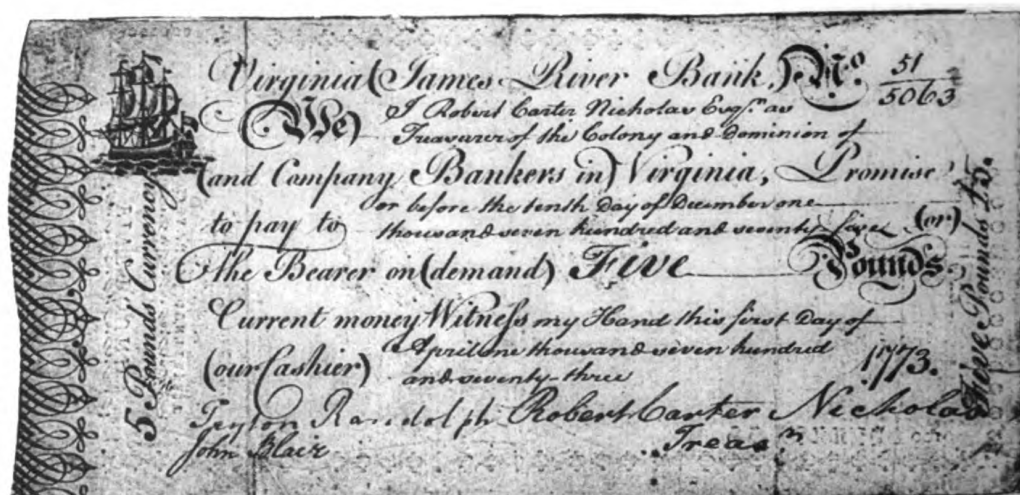 Virginia (James River Bank,) No. 51
5063
(We) I Robert Carter Nicholas Esqr. as
Treasurer of the Colony and Dominion of
(and Company Bankers in) Virginia, Promise
or before the tenth Day of December one
to pay to thousand seven hundred and seventy five (or)
the Bearer on (demand) Five Pounds
Current money Witness my Hand this first Day of
(our Cashier) April one thousand seven hundred 1773.
and seventy-three
Peyton Randolph Robert Carter Nicholas
John Blair Treasr
5 Pounds Currency
Five Pounds £5.